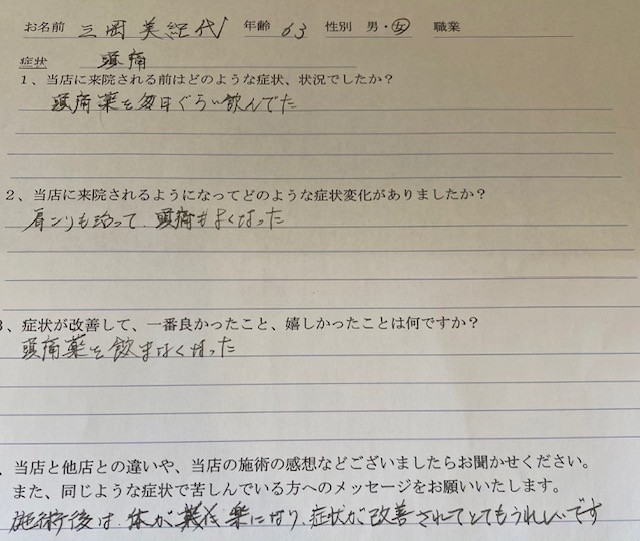 お名前 三岡 美紀代 年齢 63 性別 男・女 職業
症状 頭痛
1、当店に来院される前はどのような症状、状況でしたか？
頭痛薬を毎日ぐらい飲んでた
2、当店に来院されるようになってどのような症状変化がありましたか？
肩こりも治って、頭痛もよくなった
3、症状が改善して、一番良かったこと、嬉しかったことは何ですか？
頭痛薬を飲まなくなった
、当店と他店との違いや、当店の施術の感想などございましたらお聞かせください。
また、同じような症状で苦しんでいる方へのメッセージをお願いいたします。
施術後は、体が楽になり、症状が改善されてとてもうれしいです